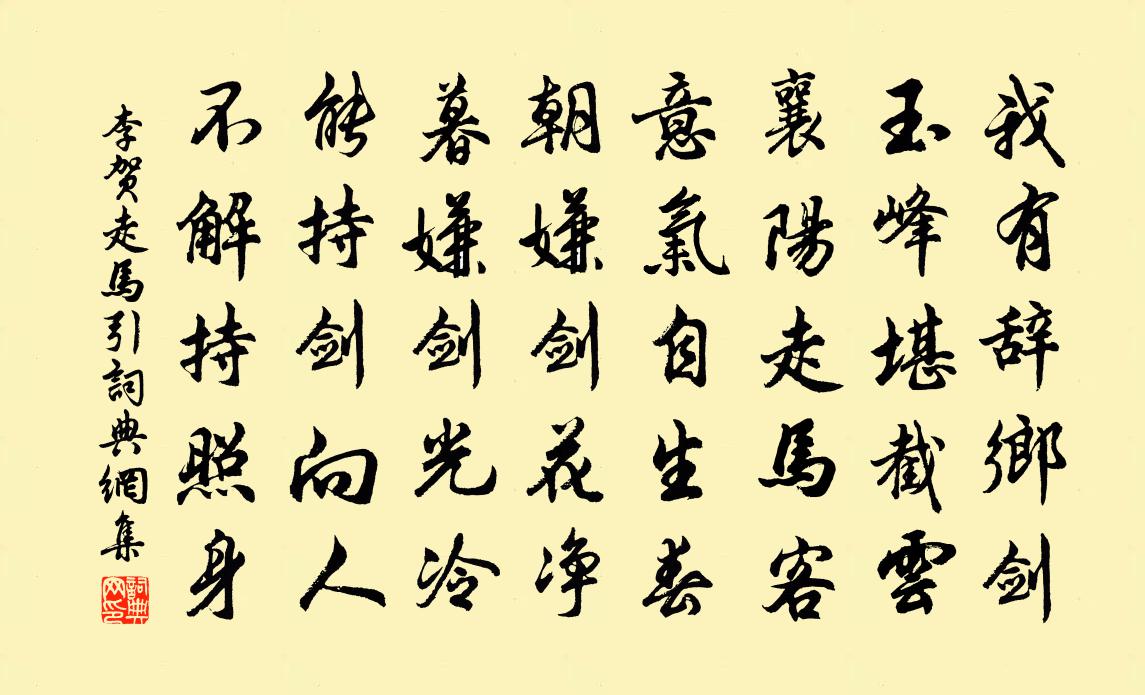 我有辞鄉剑
玉峰堪截雲
襄陽走馬客
意氣自生春
朝嫌剑花净
暮嫌剑光冷
能持剑向人
不解持照身
李贺走馬引詞典網集
詞典网印